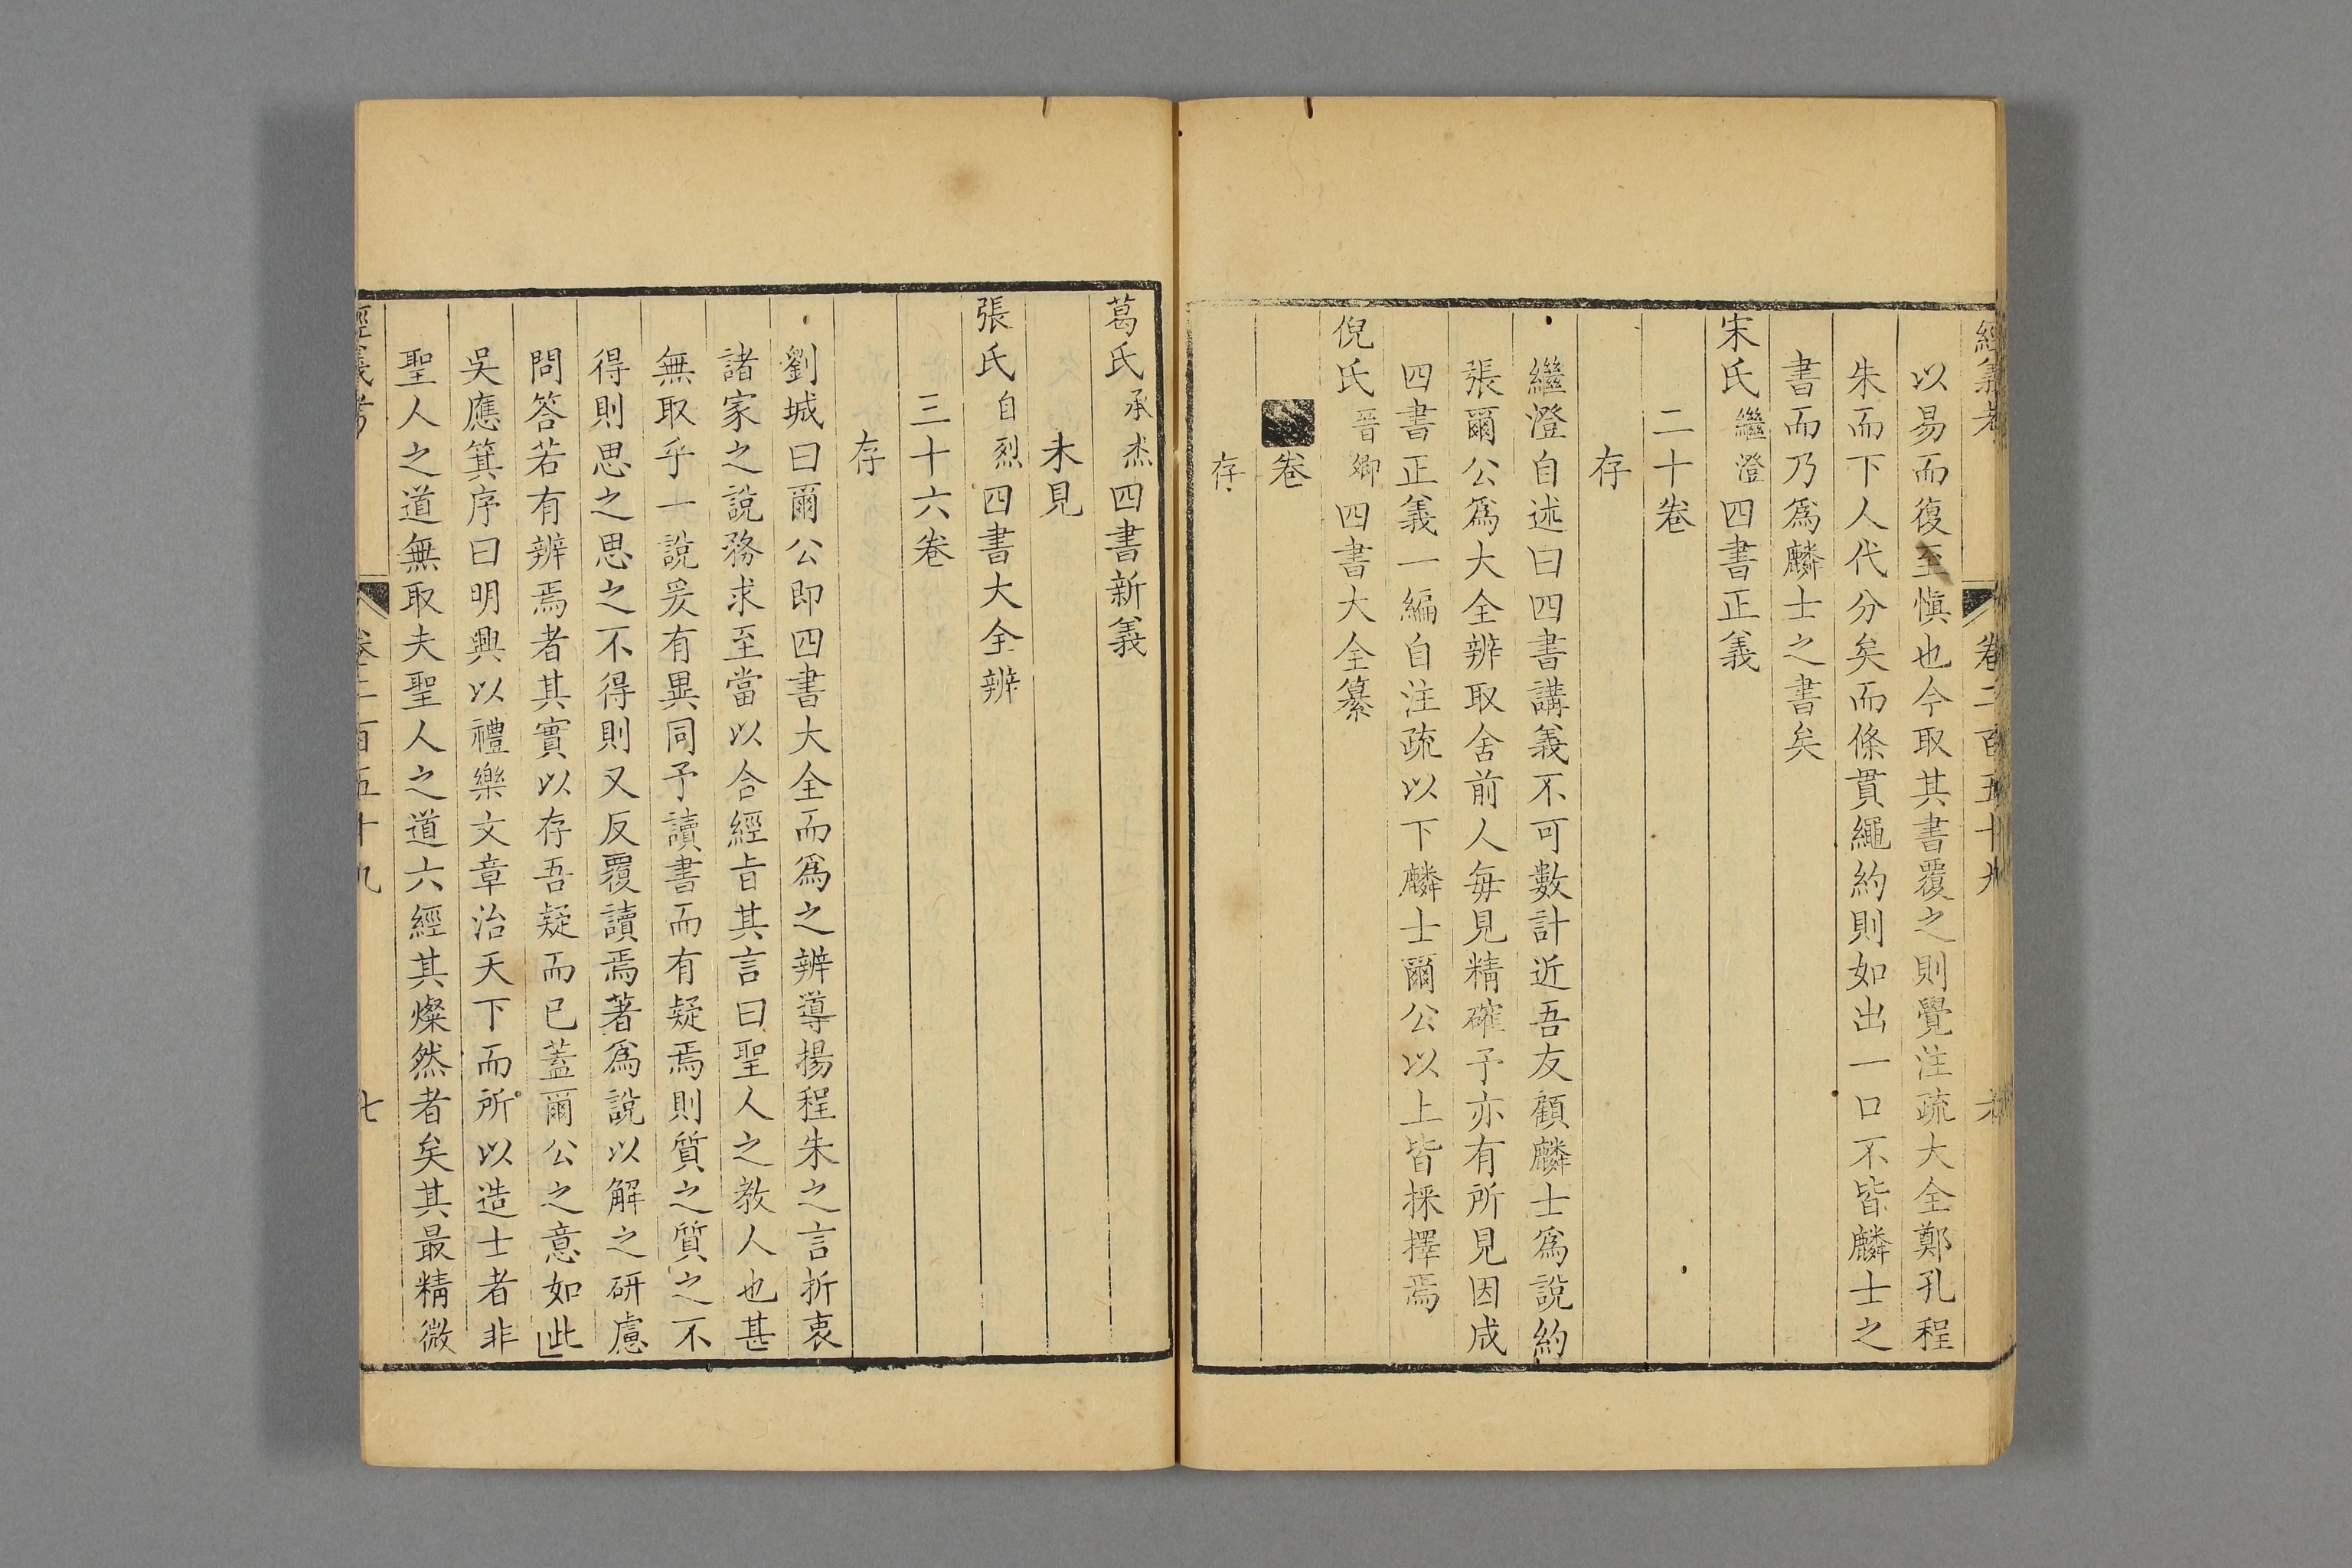 經義考 卷二百五十九 六
以易而復至愼也今取其書覆之則覺注疏大全鄭孔程
朱而下人代分矣而條貫繩約則如出一口不皆麟士之
書而乃爲麟士之書矣
宋氏繼澄四書正義
二十卷
存
繼澄自述曰四書講義不可數計近吾友顧麟士爲說約
張爾公爲大全辨取舍前人每見精確予亦有所見因成
四書正義一編自注疏以下麟士爾公以上皆採擇焉
倪氏晉卿四書大全纂
卷
存
葛氏承杰四書新義
未見
張氏自烈四書大全辨
三十六卷
存
劉城曰爾公即四書大全而爲之辨導揚程朱之言折衷
諸家之說務求至當以合經旨其言曰聖人之教人也甚
無取乎一說爰有異同予讀書而有疑焉則質之質之不
得則思之思之不得則又反覆讀焉著爲說以解之研慮
問答若有辨焉者其實以存吾疑而已蓋爾公之意如此
吳應箕序曰明興以禮樂文章治天下而所以造士者非
聖人之道無取夫聖人之道六經其燦然者矣其最精微
經義考 卷二百五十九 七